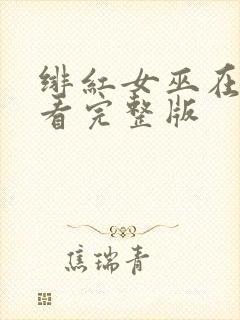 绯红女巫在
看完整版
焦瑞青